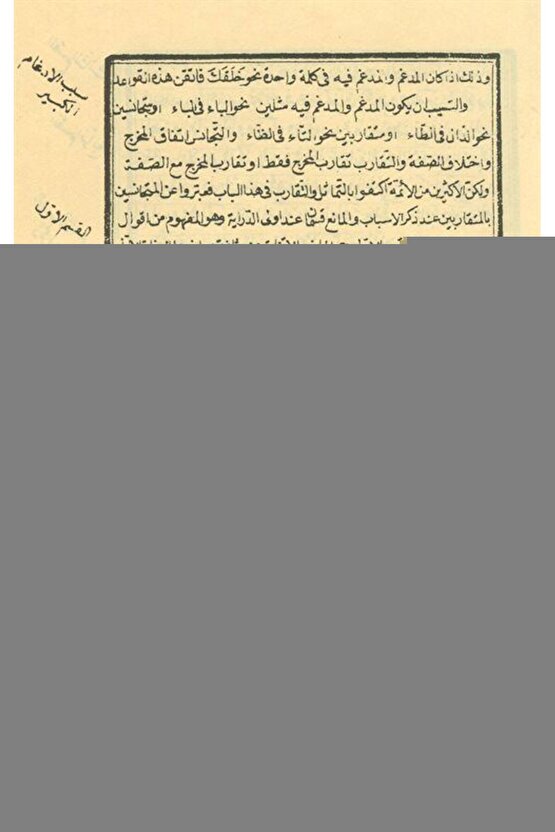 سبب الادغام
الكبير
وذلك اذا كان المدغم والمدغم فيه فى كلمة واحدة نحو خَلَقَكَ فاتقن هذه القواعد
والسبب ان يكون المدغم والمدغم فيه مثلين نحو الباء فى الباء او متجانسين
نحو الذال فى الظاء او متقاربين نحو الثاء فى الضاء والتجانس اتفاق المخرج
واختلاف الصفة والتقارب تقارب المخرج فقط او تقارب المخرج مع الصفة
ولكن الاكثرين من الائمة اكتفوا بالتماثل والتقارب فى هذا الباب فعبروا عن المتجانسين
بالمتقاربين عند ذكر الاسباب والمانع قسمان عند اولى الدراية وهو المفهوم من اقوال
القسم الاول